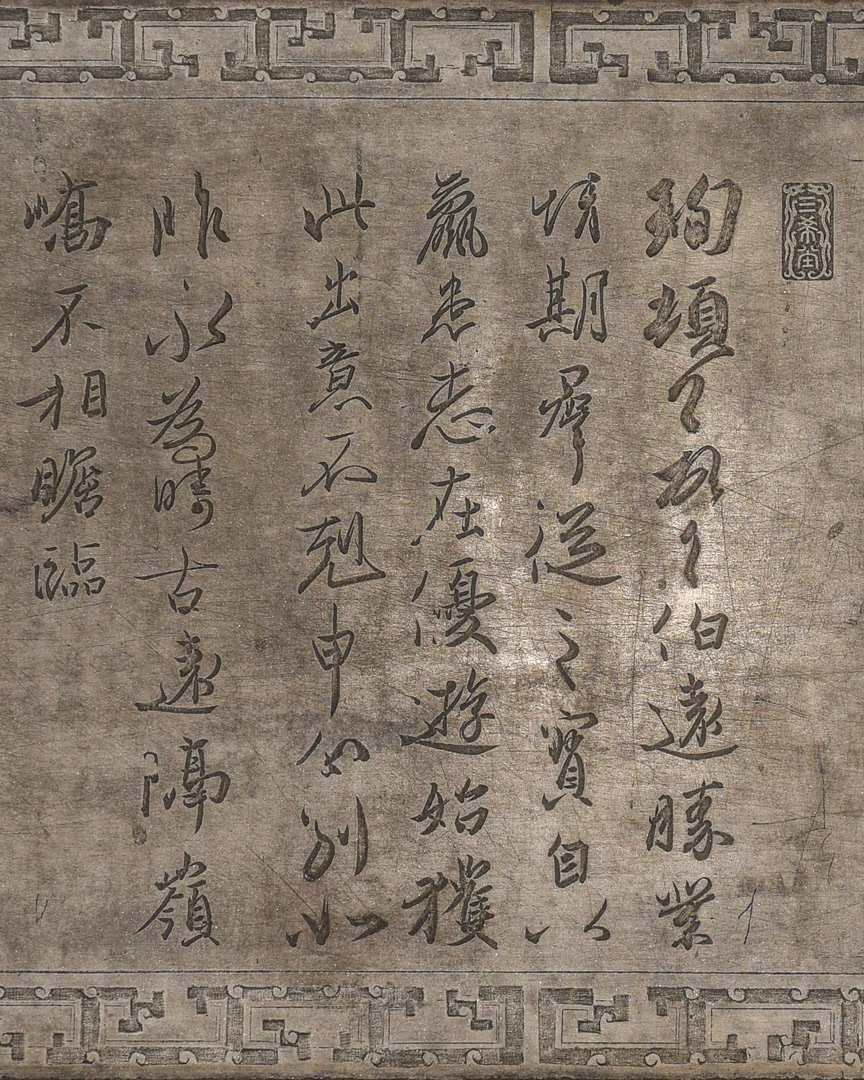 三希堂
珣頓首頓首伯遠勝業
情期羣從之寶自以
羸患志在優遊始獲
此出意不剋申分別如
昨永為疇古遠隔嶺
嶠不相瞻臨